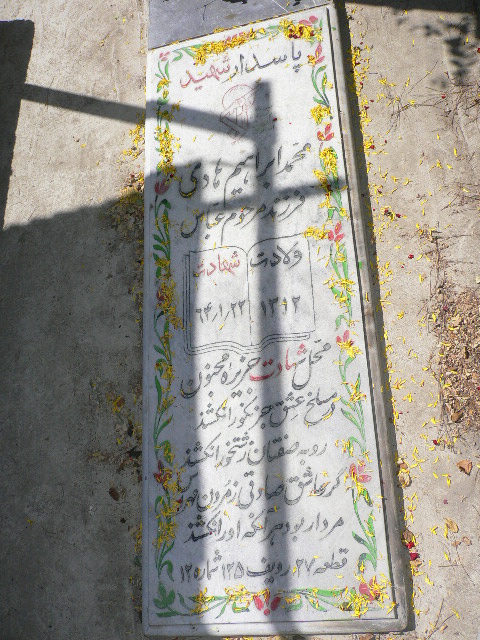 پاسدار شهید
محمد ابراهیم هادی
فرزند مرحوم عباس
ولادت شهادت
۱۳۱۲ ۶۴/۱/۲۲
محل شهادت جزیره مجنون
در مسلخ عشق جز نکو را نکشند
روبه صفتان زشتخو را نکشند
گر عاشق صادقی ز مردن مهراس
مردار بود هر آنکه او را نکشند
قطعه ۲۷ ردیف ۱۲۵ شماره ۱۲